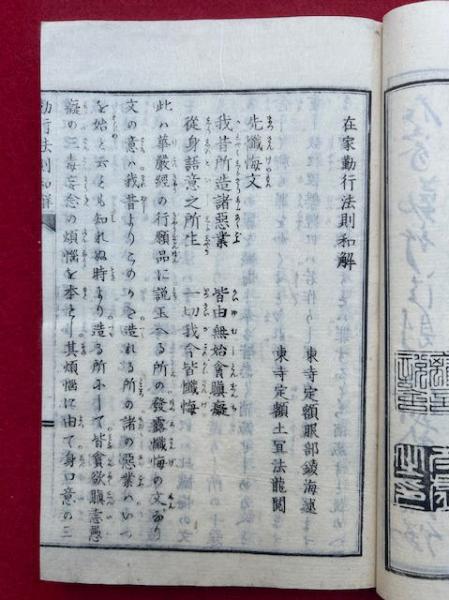 在家勤行法則和解
東寺定額服部鑁海述
東寺定額土宜法龍閲
先懺悔文
我昔所造諸惡業　皆由無始貪瞋癡
從身語意之所生　一切我今皆懺悔
此ハ華嚴經の行願品に説玉へる所の發露懺悔の文なり
文の意ハ我昔よりこのかた造れる所の諸の惡業ハいつ
を始と云ことも知れぬ時より造る所にして皆貪欲瞋恚愚
癡の三毒妄念の煩惱を本とし其煩惱に由て身口意の三
勤行法則和解